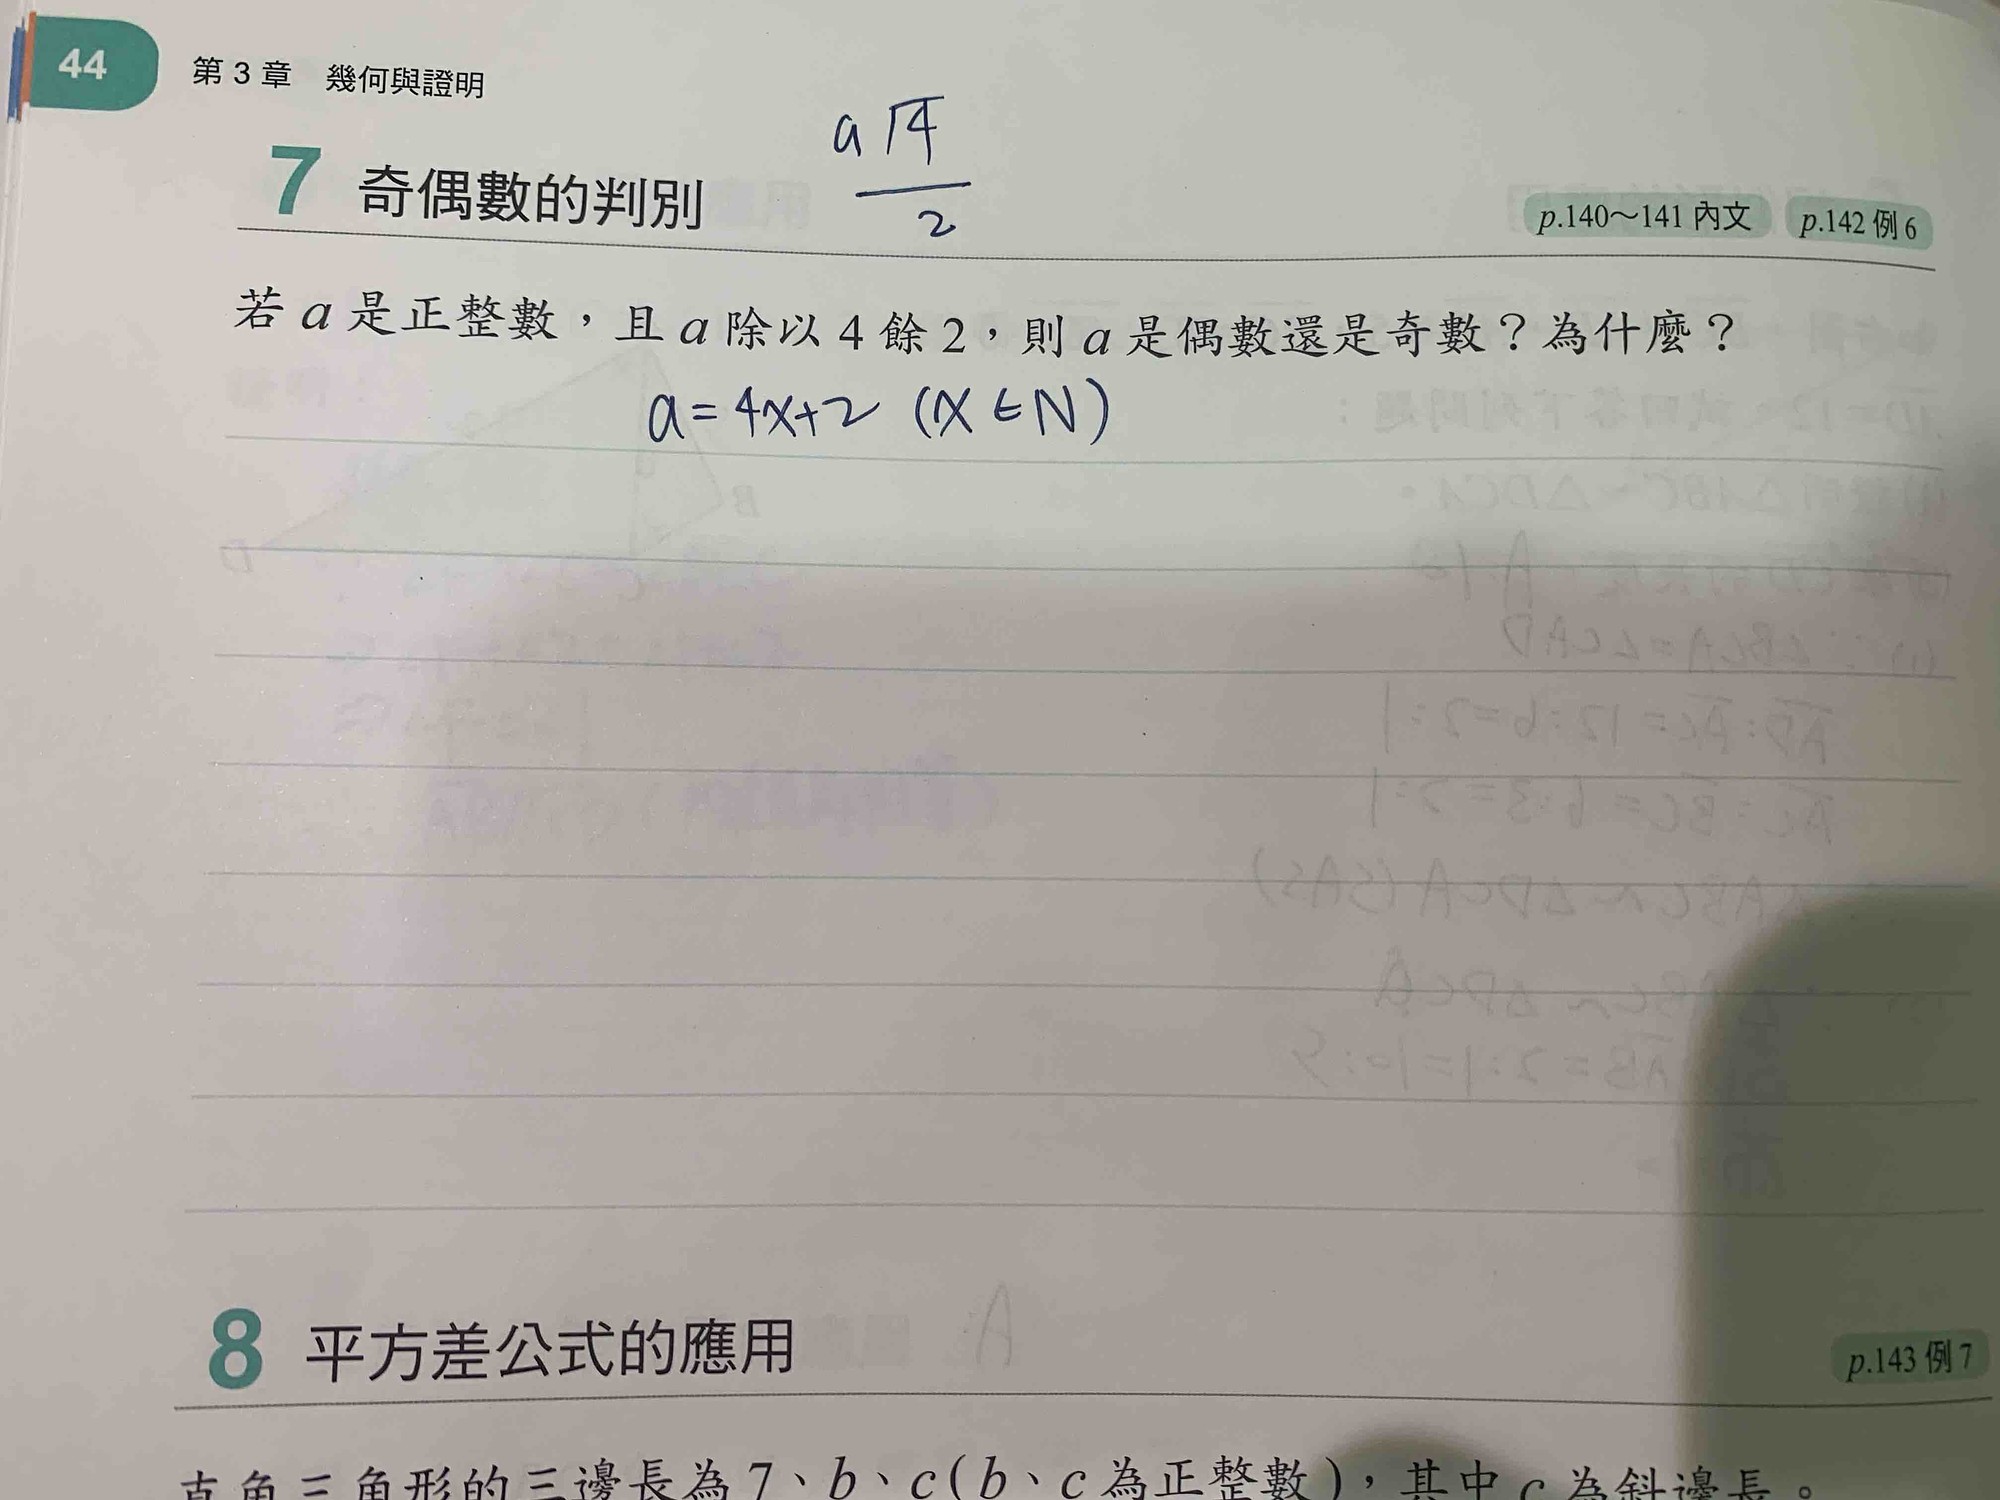 44
第 3 章 幾何與證明
a √4
2
7 奇偶數的判別
p.140～141 內文 p.142 例 6
若 a 是正整數，且 a 除以 4 餘 2，則 a 是偶數還是奇數？為什麼？
a = 4x+2 (x ∈ N)
8 平方差公式的應用
p.143 例 7
直角三角形的三邊長為 7、b、c ( b、c 為正整數 )，其中 c 為斜邊長。